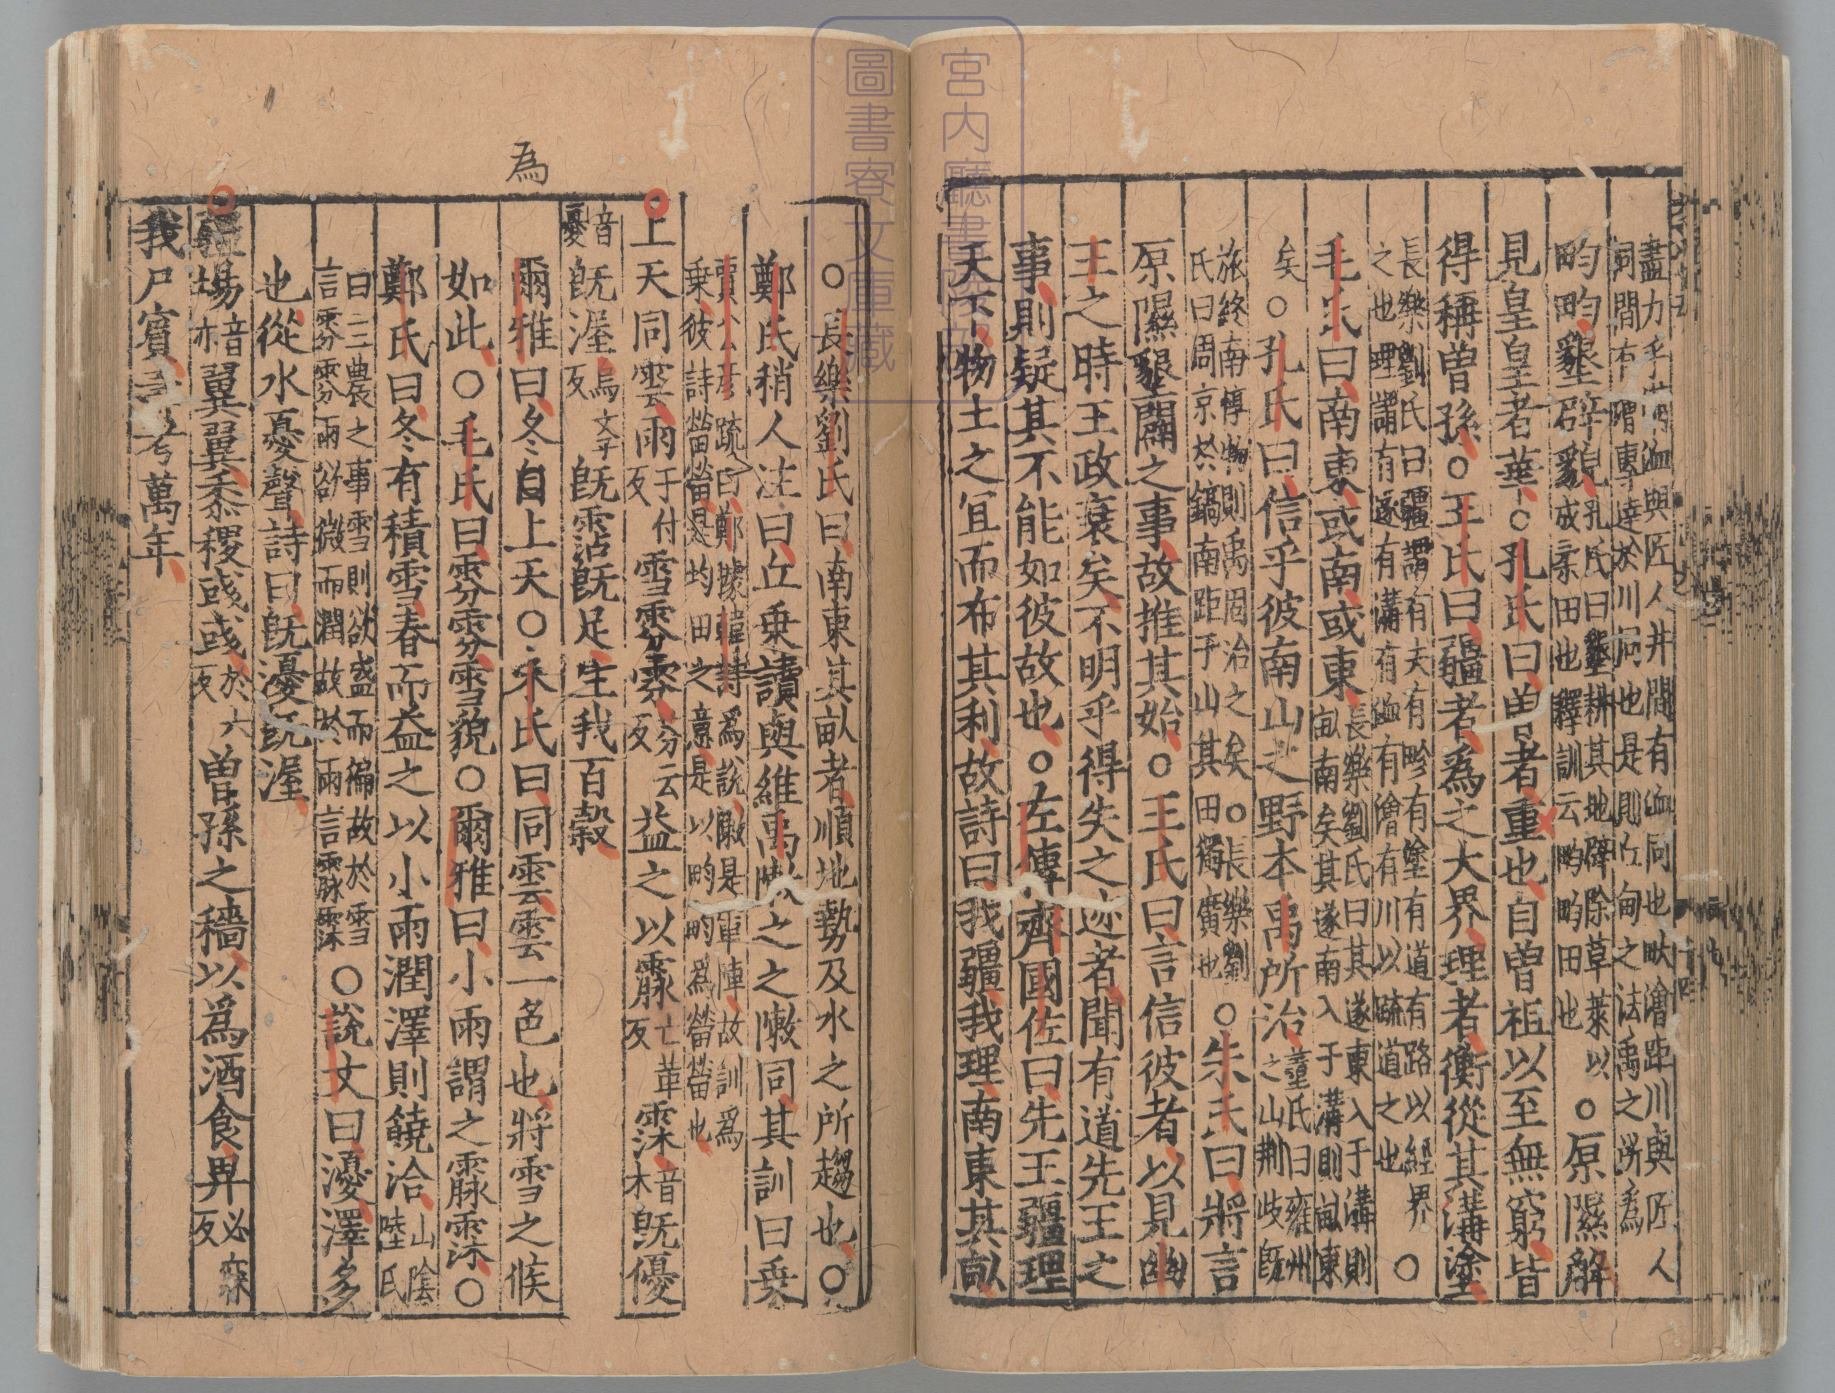 盡力乎溝洫與匠人井間有洫同也畎澮距川與匠人
同間有澮專達於川同也是則丘甸之法禹之所為
畇畇墾辟貌孔氏曰墾耕其地辟除草萊以
畇畇墾辟貌成柔田也釋訓云畇畇田也〇原隰解
見皇皇者華〇孔氏曰曽者重也自曽祖以至無窮皆
得稱曽孫〇王氏曰疆者為之大界理者衡從其溝塗
長樂劉氏曰疆謂有夫有畛有塗有道有路以經界
之也理謂有遂有溝有洫有澮有川以䟽道之也〇
毛氏曰南東或南或東長樂劉氏曰其遂東入于溝則
畝南矣其遂南入于溝則畝東
矣〇孔氏曰信乎彼南山之野本禹所治董氏曰雍州
之山荆歧旣
旅終南惇物則禹固治之矣〇長樂劉
氏曰周京於鎬南距乎山其田獨廣也〇朱氏曰將言
原隰墾闢之事故推其始〇王氏曰言信彼者以見幽
王之時王政衰矣不明乎得失之迹者聞有道先王之
事則疑其不能如彼故也〇左傳齊國佐曰先王疆理
天下物土之宜而布其利故詩曰我疆我理南東其畝
〇長樂劉氏曰南東其畝者順地勢及水之所趨也〇
鄭氏稍人注曰丘乗讀與維禹敶之之敶同其訓曰乗
賈公彦䟽曰鄭據韓詩為說敶是軍陣故訓為
乗彼詩䈽䈽是均田之意是以畇畇為䈽䈽也
上天同雲雨于付反雪雰雰芬云反益之以霡亡革反霂音木旣優
音憂旣渥烏文子反旣霑旣足生我百穀
爾雅曰冬曰上天〇朱氏曰同雲雲一色也將雪之候
如此〇毛氏曰雰雰雪貌〇爾雅曰小雨謂之霡霂〇
鄭氏曰冬有積雪春而益之以小雨潤澤則饒洽山陰
陸氏
曰三農之事雪則欲盛而徧故於雪
言雰雰雨欲微而潤故於雨言霡霂〇說文曰瀀澤多
也從水憂聲詩曰旣瀀旣渥
疆埸音亦翼翼黍稷彧彧於六反曽孫之穡以為酒食畀必寐反
我尸賔壽考萬年
為
宮內廳書陵部
圖書寮文庫藏